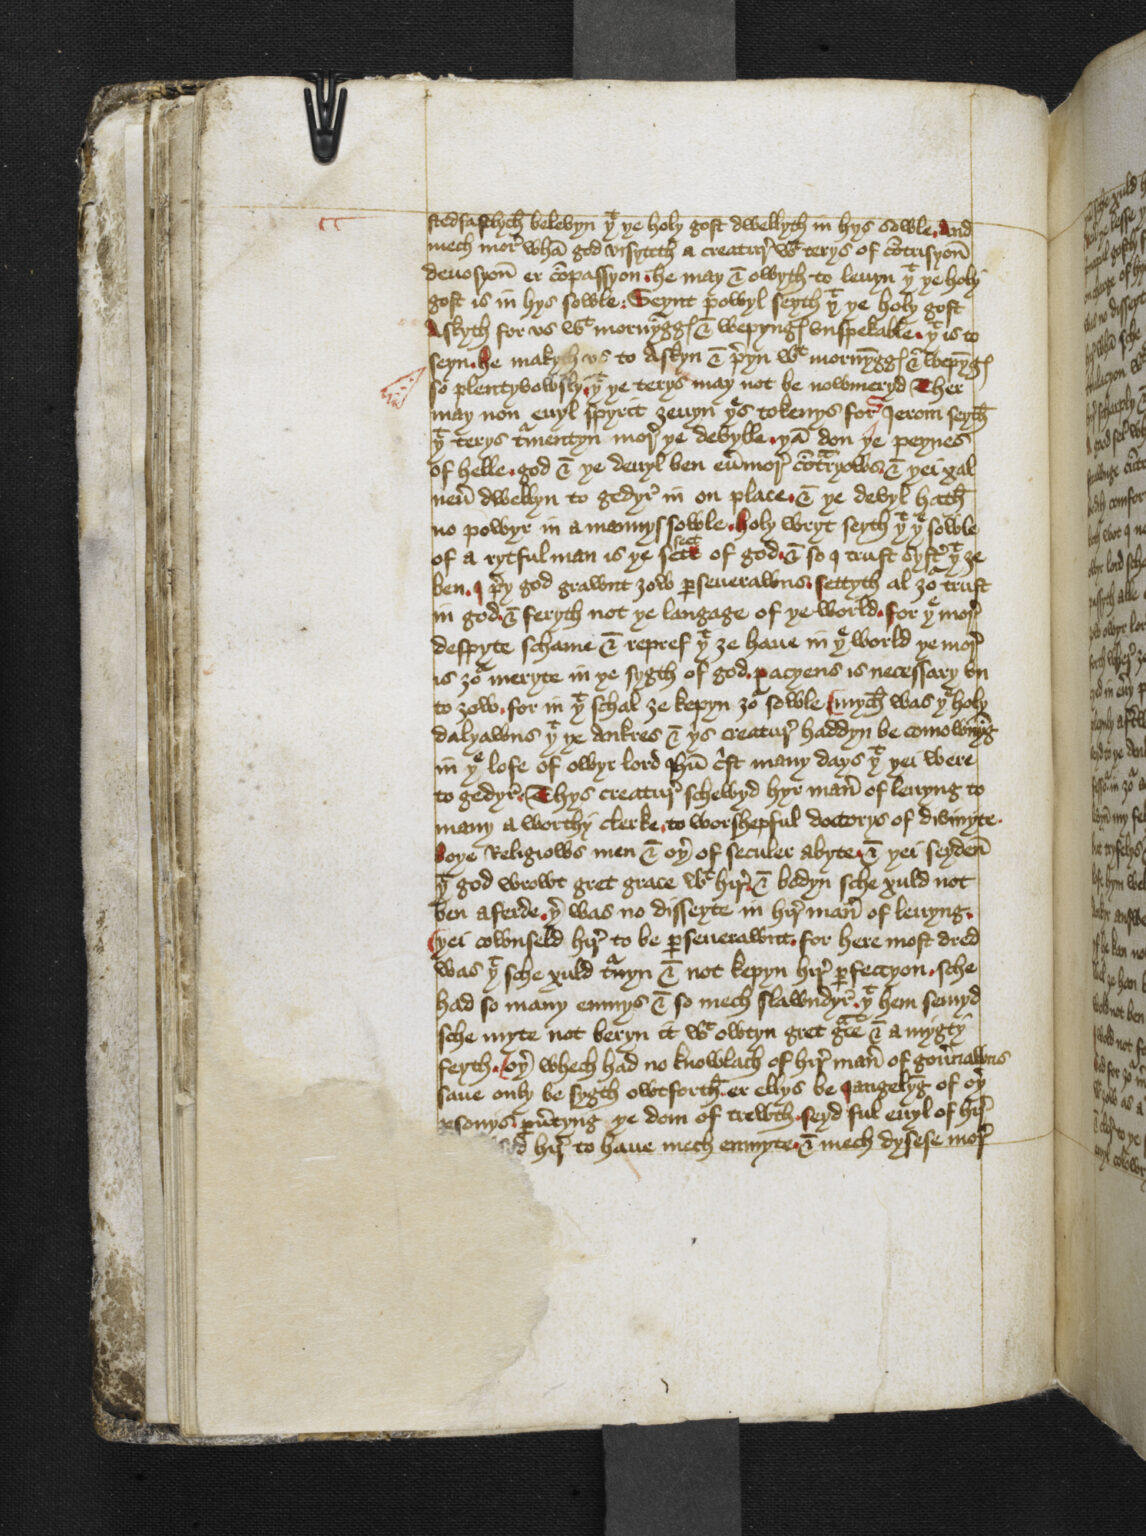 stedfastlych belevyn yͭ ye holy gost dwellyth in hys sowle. And
mech morͤ whā god visyteth a creaturͤ wͭ terys of cōtrisyon̄
deuosyon̄ er cōpassyon. he may & owyth to leuyn yͭ ye holy
gost is in hys sowle. Seynt powyl seyth yͭ ye holy gost
Askyth for vs wͭ mornȳggꝭ & wepyngꝭ vnspekable. yͭ is to
seyn. he makyth vs to Askyn & p̄yn wͭ mornȳggꝭ & wepȳgꝭ
so plentyvowsly. yͭ ye terys may not be nowmeryd Ther
may non euyl spyrit ȝeuyn yͤs tokenys for Jerom seyth
yͭ terys tͬmentyn morͤ ye devylle. yā don ye peynes
of helle. god & ye deuyl ben eūmorͤ cōtͬryows. & yei xal
neū dwellyn to gedyrͤ in on place. & ye devyl hath
no powyr in a mannys sowle. Holy wryt seyth yͭ yͤ sowle
of a rytful man is ye sete of god. & so I trust systͬ yͭ ȝe
ben. I p̄y god grawnt ȝow ꝑseuerawns. settyth al ȝoͬ trust
in god. & feryth not ye langage of ye world. for yͤ morͤ
despyte schame & repref yͭ ȝe haue in yͤ world ye morͤ
is ȝoͬ meryte in ye sygth of god. pacyens is necessary vn
to ȝow. for in yͭ schal ȝe kepyn ȝoͬ sowle mych was yͤ holy
dalyawns yͭ ye ankres & yͤs creaturͤ haddyn be comownyng
in yͤ lofe of owyr lord ihū cͬst many days yͭ yei were
to gedyrͤ. Thys creaturͤ schewyd hyr man̄ of leuyng to
many a worthy clerke. to worshepful doctorys of divinyte.
boye Religiows men & oyͬ of seculer abyte. & yei seyden
yͭ god wrowt gret grace wͭ hirͤ. & bodyn sche xuld not
ben aferde. yͬ was no disseyte in hirͤ man̄ of leuyng.
yei cownseld hirͤ to be ꝑseuerawnt. for here most dred
was yͭ sche xuld tͬnyn & not kepyn hirͤ ꝑfeccyon. sche
had so many enmys & so mech slawndyrͤ. yͭ hem semyd
sche myte not beryn it wͭ owtyn gret gͬce & a mygty
feyth. oyͬ whech had no knowlach of hirͤ man̄ of gouͬnawns
saue only be sygth owtforth. er ellys be Jangelȳg of oyͬ
ꝑsonys. ꝑuͬtyng ye dom of trewth. seyd ful euyl of hirͤ
hirͤ to haue mech enmyte. & mech dysese morͤ